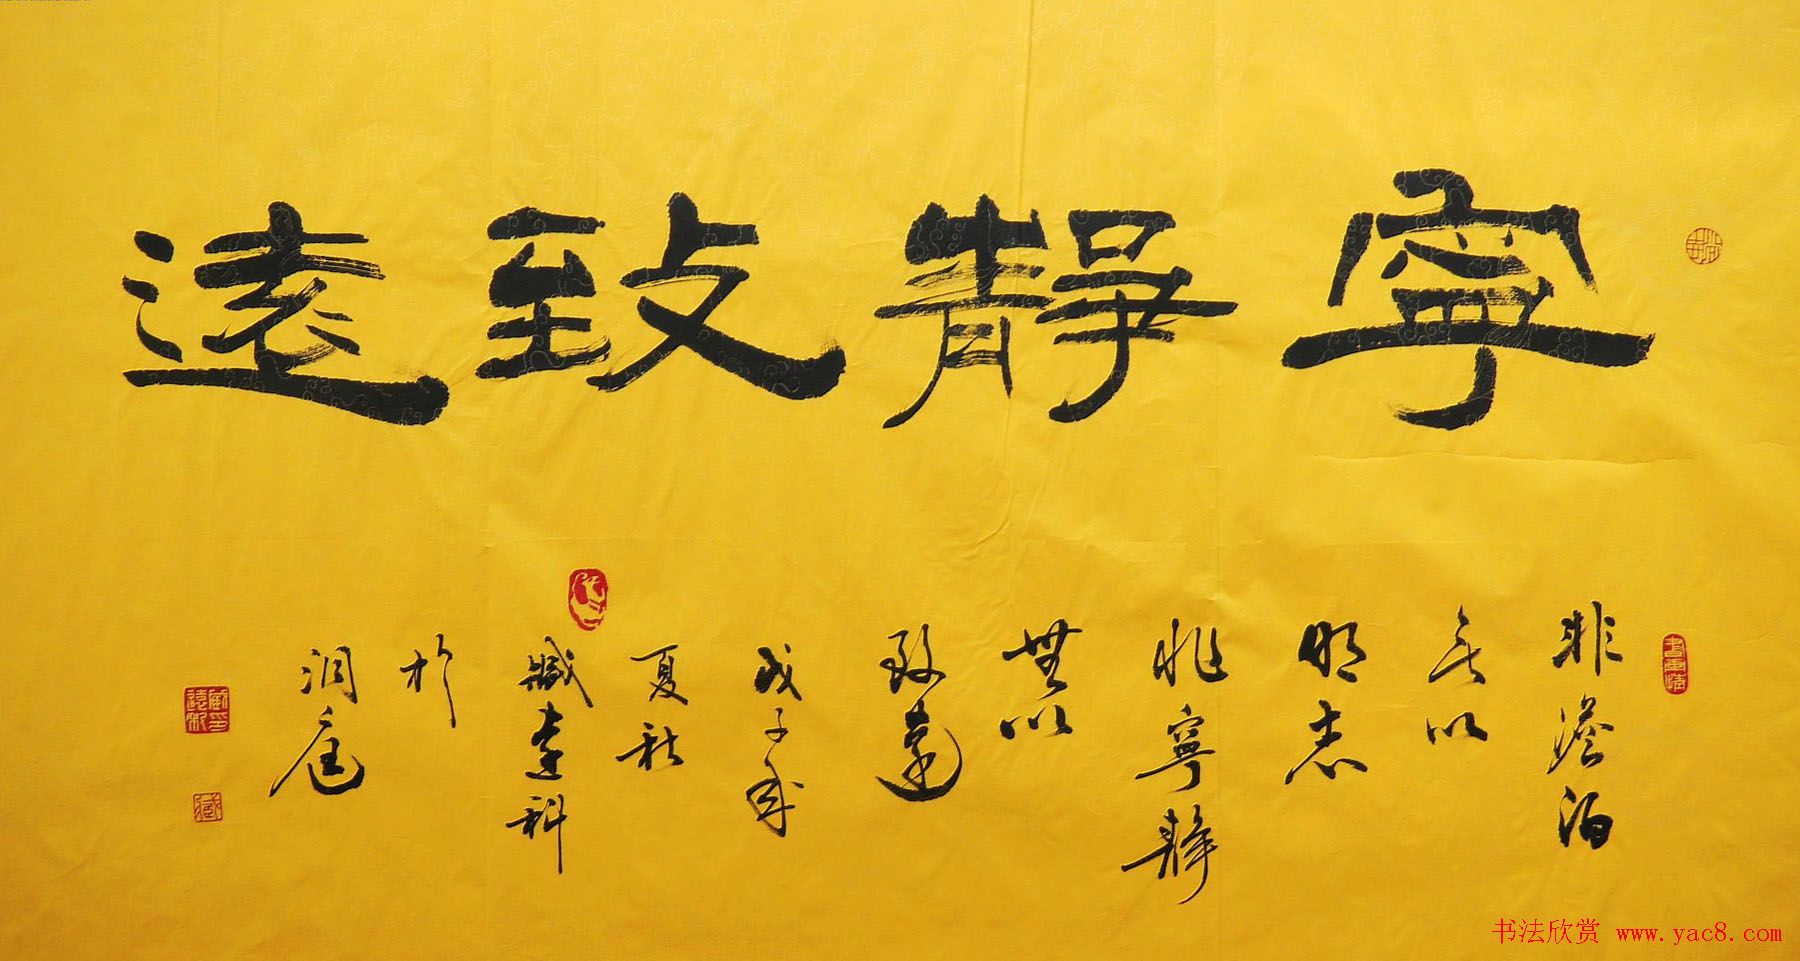 寧靜致遠
非澹泊
无以
明志
非寧靜
無以
致遠
戊子年
夏秋
臧遠科
於
润庭
书法欣赏 www.yac8.com